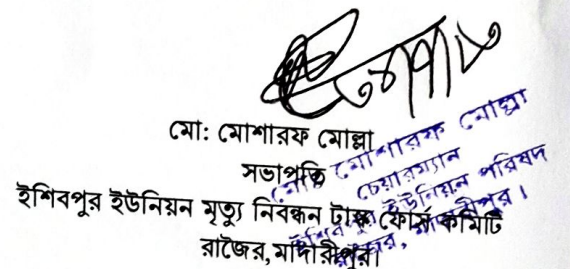 মো: মোশারফ মোল্লা
সভাপতি
ইশিবপুর ইউনিয়ন মৃত্যু নিবন্ধন টাস্ক ফোর্স কমিটি
রাজৈর,মাদারীপুর।
মোঃ মোশারফ মোল্লা
চেয়ারম্যান
ইশিবপুর ইউনিয়ন পরিষদ
রাজৈর, মাদারীপুর।